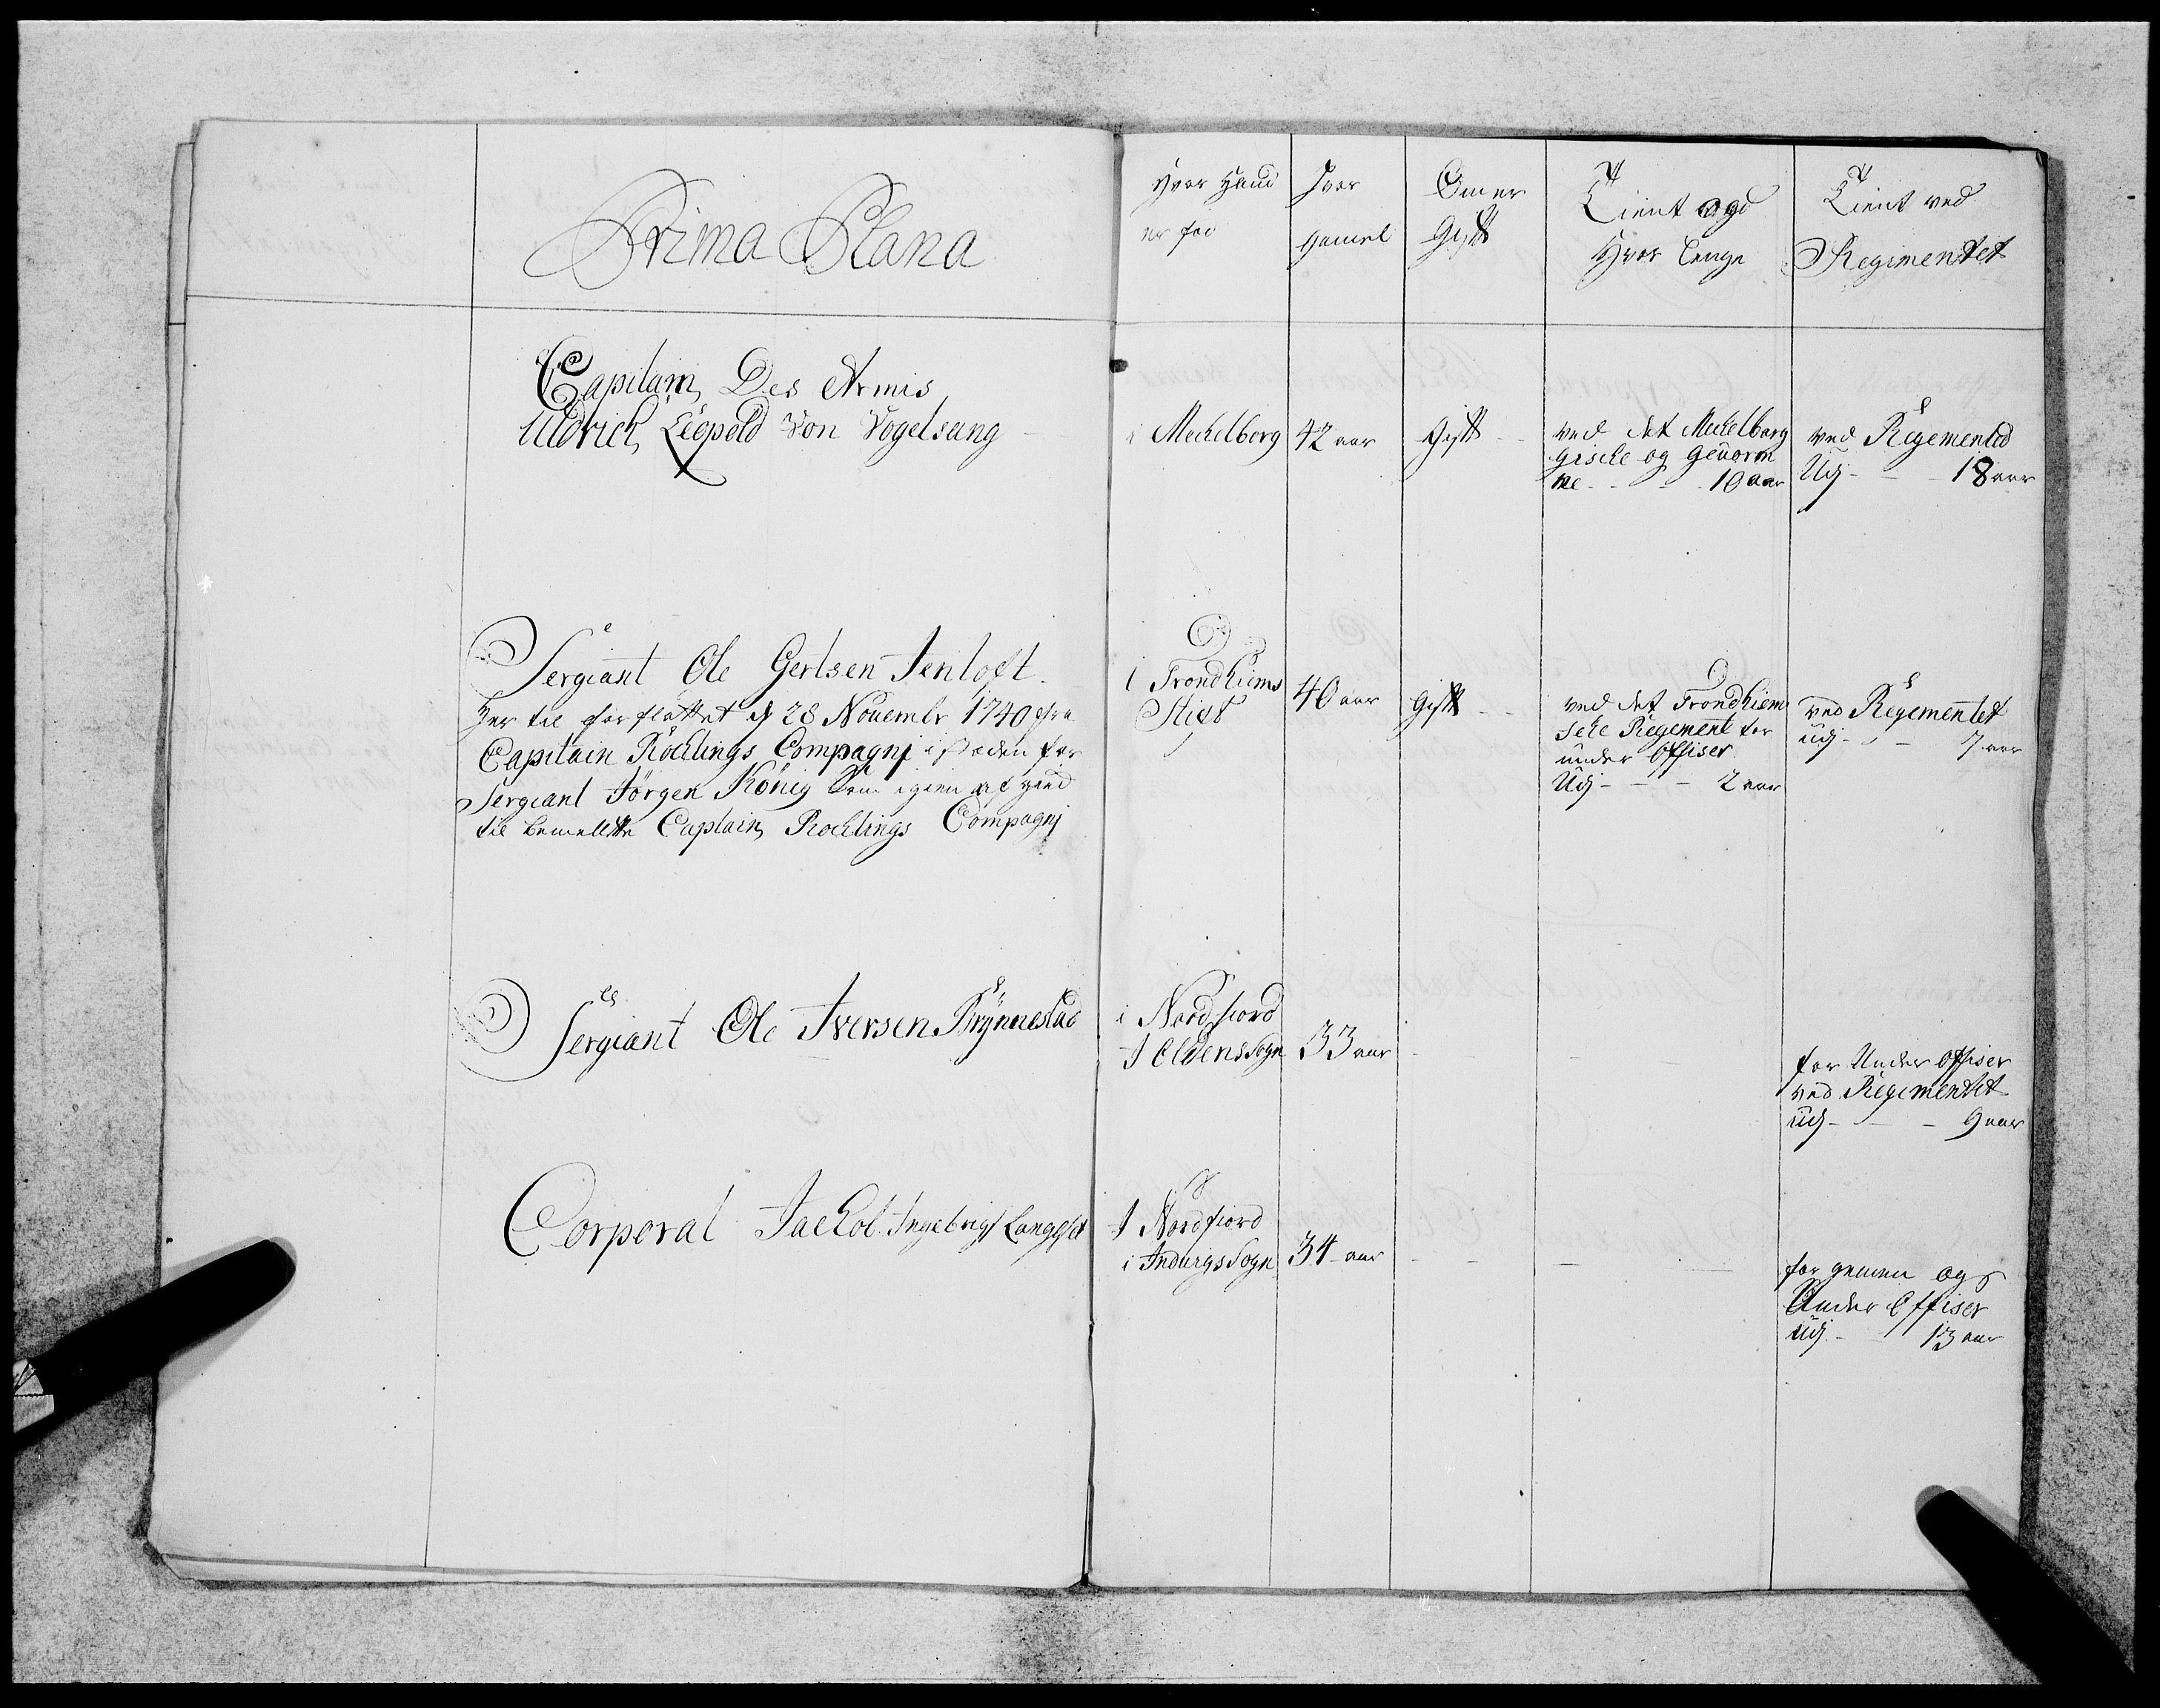 Prima Plana
Hvor Hand
er fød
Hvor
gamel
Om er
Gift
Tient og
Hvor lenge
Tient ved
Regimentet
Capitain Des Armis
Uldrich Leopold Von Vogelsang
i Mechelborg
42 aar
Gift
ved det Mechelborg
gische og
10 aar
ved Regementet
Udj - - 18 aar
Sergiant Ole Gertsen Jenloft.
Her til forfløttet d 28 Novembr 1740 fra
Capitain Röchlings Compagnj i stæden for
Sergiant Jörgen König som igien af gued
til bemelte Captain Rochlings Compagnj
i Trondhiems
Stigt
40 aar
gift - -
ved det Trondhiem
sche Regement for
under Offiser
Udj - - - 2 aar
ved Regementet
udj - - 7 aar
Sergiant Ole Iversen Brynnestad
i Nordfiord
I Oldens Sogn
33 aar
for Under Offiser
ved Regementet
udj - - - 9 aar
Corporal Jachob Ingebrigts Langeset
I Nordfiord
i Indvigs Sogn
34 aar - - - -
for gemen og
Under Offiser
Udj - 13 aar